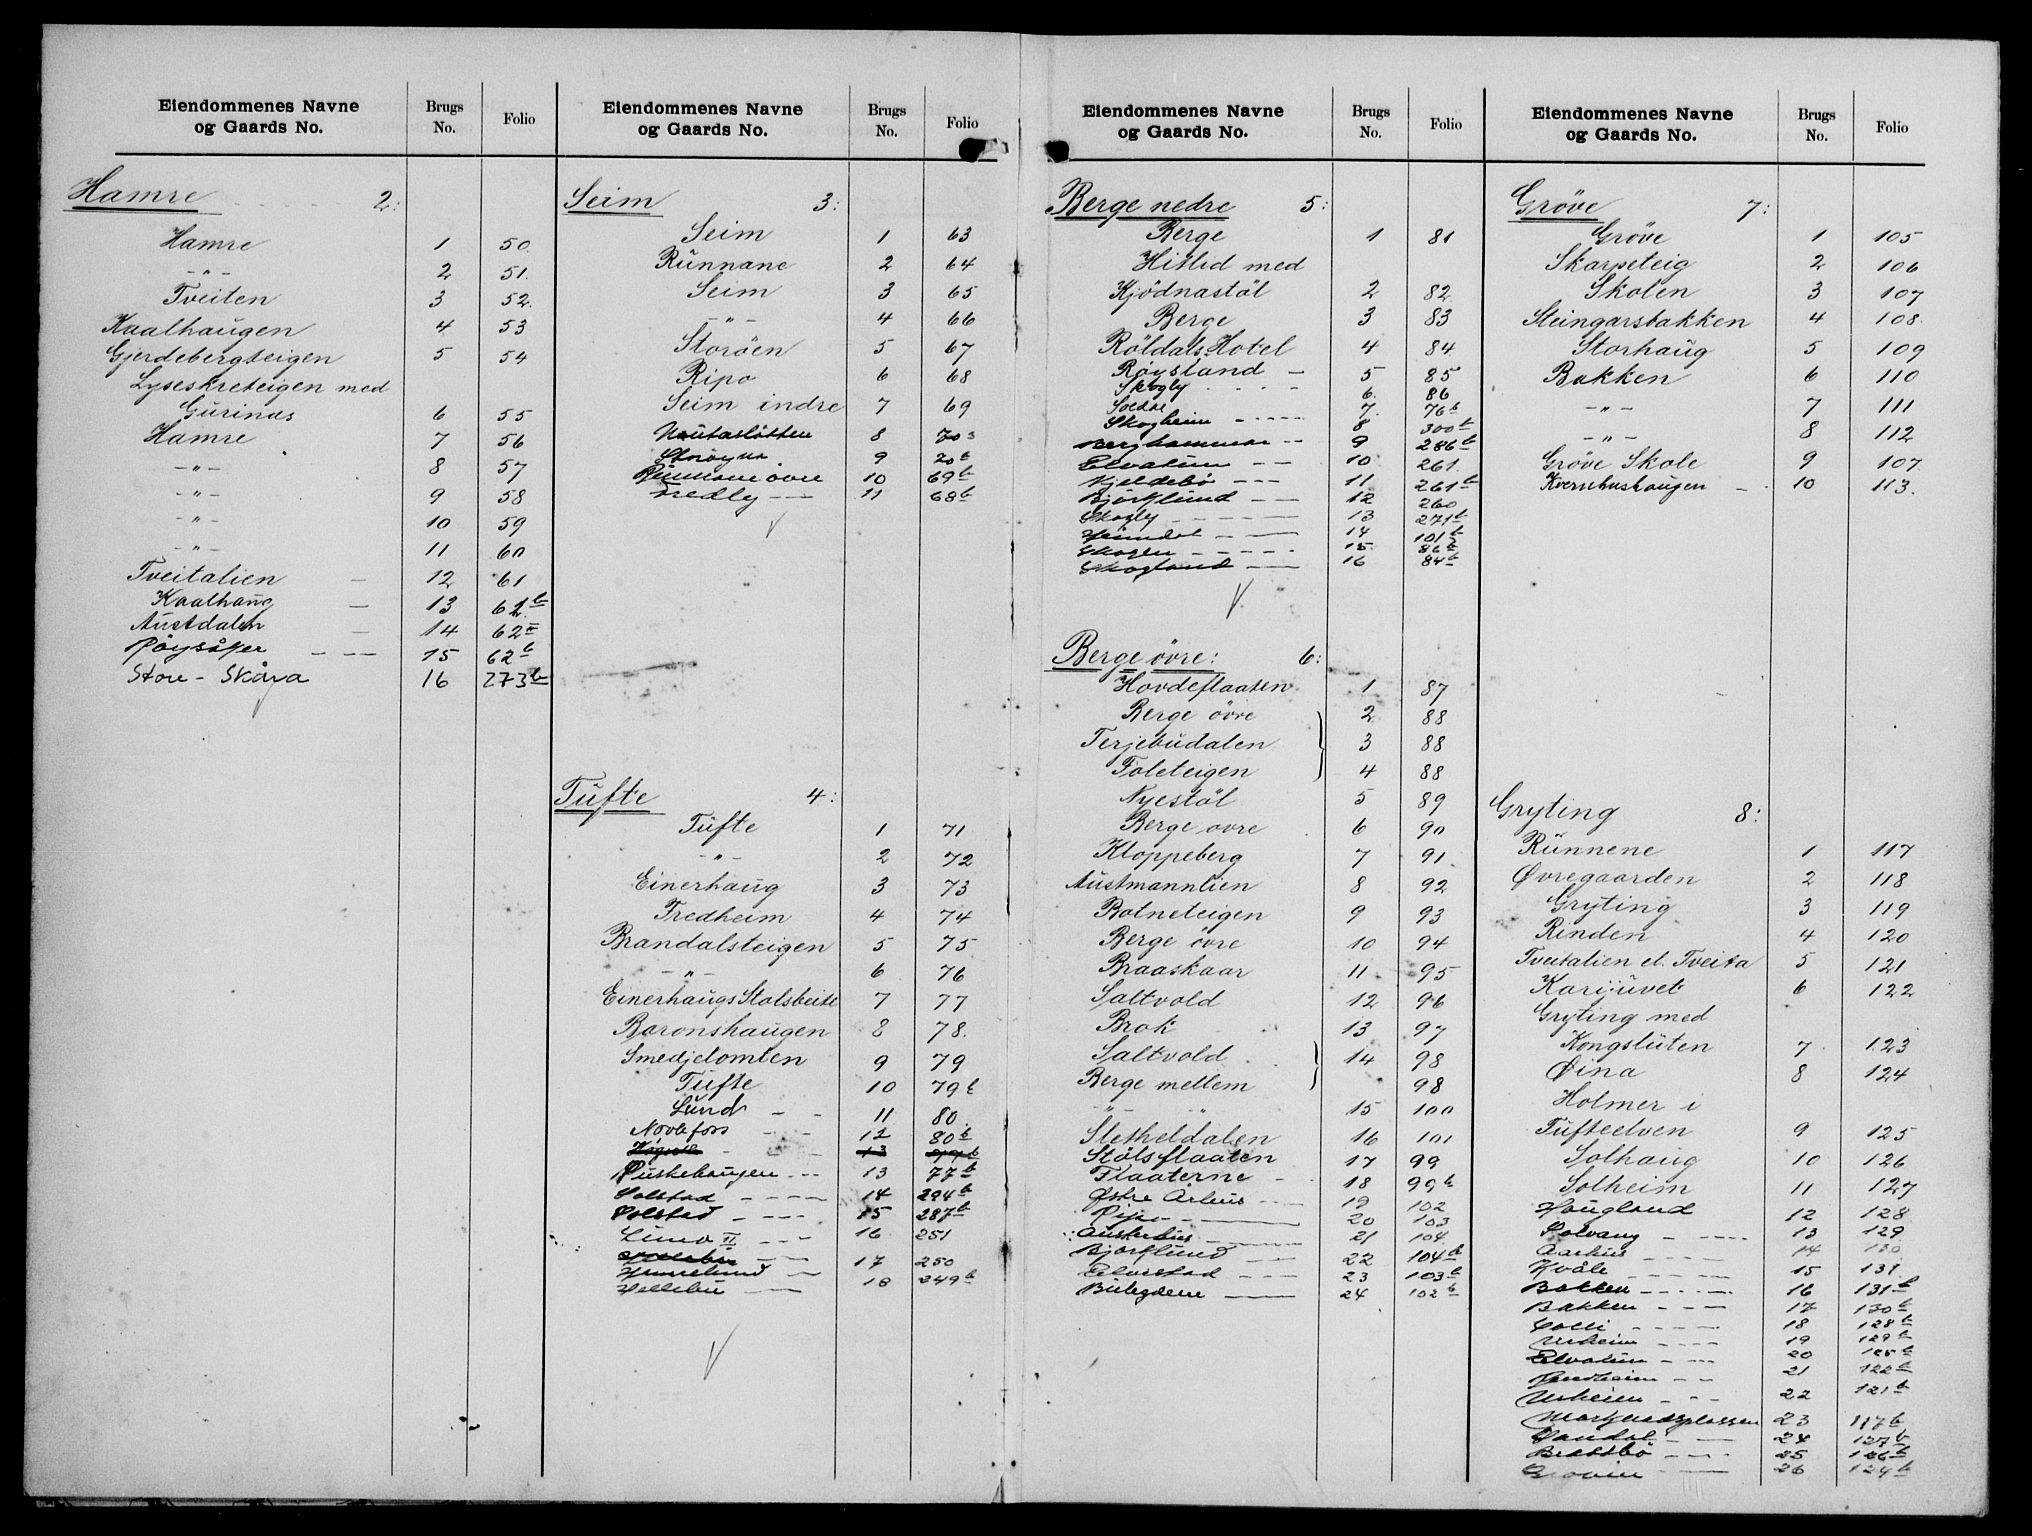 Eiendommenes Navne og Gaards No. Brugs No. Folio
Hamre 2:
Hamre 1 50.
-"- 2 51.
Tveiten 3 52.
Kaalhaugen 4 53
Gjerdebergteigen 5 54
Lyseskreteigen med
Gurinas 6 55
Hamre 7 56
-"- 8 57
-"- 9 58
-"- 10 59
-"- 11 60
Tveitalien - 12 61
Kaalhaug - 13 62b
Austdalen - 14 62
Röysåker - - - 15 62b
Store - Skåra 16 273b
Eiendommenes Navne og Gaards No. Brugs No. Folio
Seim 3:
Seim 1 63
Rünnane 2 64
Seim 3 65
-"- 4 66
Storöen 5 67
Ripo 6 68
Seim indre 7 69
8 70
9 70b
Rünnane övre 10 69b
Fredly - - 11 68b
Tüfte 4:
Tüfte 1 71
-"- 2 72
Einerhaug 3 73
Fredheim 4 74
Brandalsteigen 5 75
-"- 6 76
Einerhaugs Stølsbeite 7 77
Baronshaugen 8 78.
Smedjetomten 9 79
Tüfte 10 79b
Lünd - - 11 80.
Novlefoss - - 12 80b
13
Püskehaugen - - 13 77b
Solstad - - - - 14 294b
Solstad - - - - 15 287b
Lund II - - - 16 251
17 250
18 249b
Eiendommenes Navne og Gaards No. Brugs No. Folio
Berge nedre 5:
Berge 1 81
Hitlid med
Kjödnastöl 2 82
Berge 3 83
Röldals Hotel 4 84
Røysland - 5 85
Skogly - - - - 6. 86
7. 76b
Skogheim - - - - 8 300b
Berghammar - - 9 286b
Elvatun - - 10 261.
Kjeldebö - - - 11 261b
Björklund - - - 12 260
Skogly - - - - 13 271b
Heimdal - - - 14 101b
Skogen - - - - - 15 86b
Skogland - - - 16 84b
Berge övre: 6:
Hovdeflaaten 1 87
Berge övre 2 88
Terjebudalen 3 88
Foleteigen 4 88
Nyestöl 5 89
Berge övre 6 90
Kloppeberg 7 91
Austmannlien 8 92
Botneteigen 9 93
Berge övre 10 94
Braaskaar 11 95
Saltvold 12 96
Brok 13 97
Saltvold 14 98
Berge mellem 98
-"- -"- 15 100
Sletheldalen 16 101
Stölsflaaten 17 99
Flaaterne - 18 99b
Østre Århus - - 19 102
Ripo - - 20 103
Austerhus - 21 104
Björklund - - 22 104b
Elverstad - - - 23 103b
24 102b
Eiendommenes Navne og Gaards No. Brugs No. Folio
Gröve 7:
Gröve 1 105
Skarpeteig 2 106
Skolen 3 107
Steingarsbakken 4 108.
Storhaug 5 109
Bakken 6 110
-"- 7 111
-"- 8 112
Gröve Skole 9 107.
Kvernhushaugen - 10 113.
Gryting 8:
Rünnene 1 117
Øvregaarden 2 118
Gryting 3 119
Rinden 4 120
Tveitalien el. Tveita 5 121
Karijuvet 6 122
Gryting med
Kongslüten 7 123
Øina 8 124
Holmer i
Tüfteelven 9 125
Solhaug 10 126
Solheim 11 127
Haugland 12 128
Solvang - - - - 13 129
Aarhus 14 130
Kvåle - - - - - 15 131
Bakken - - - - - 16 131b
Bakken - - - - 17 130b
18 128b
19 129b
Elvatun - - - 20 125b
21 122b
22 121b
23 117b
24 127b
Brattebö - - - - 25 126b
26 124b